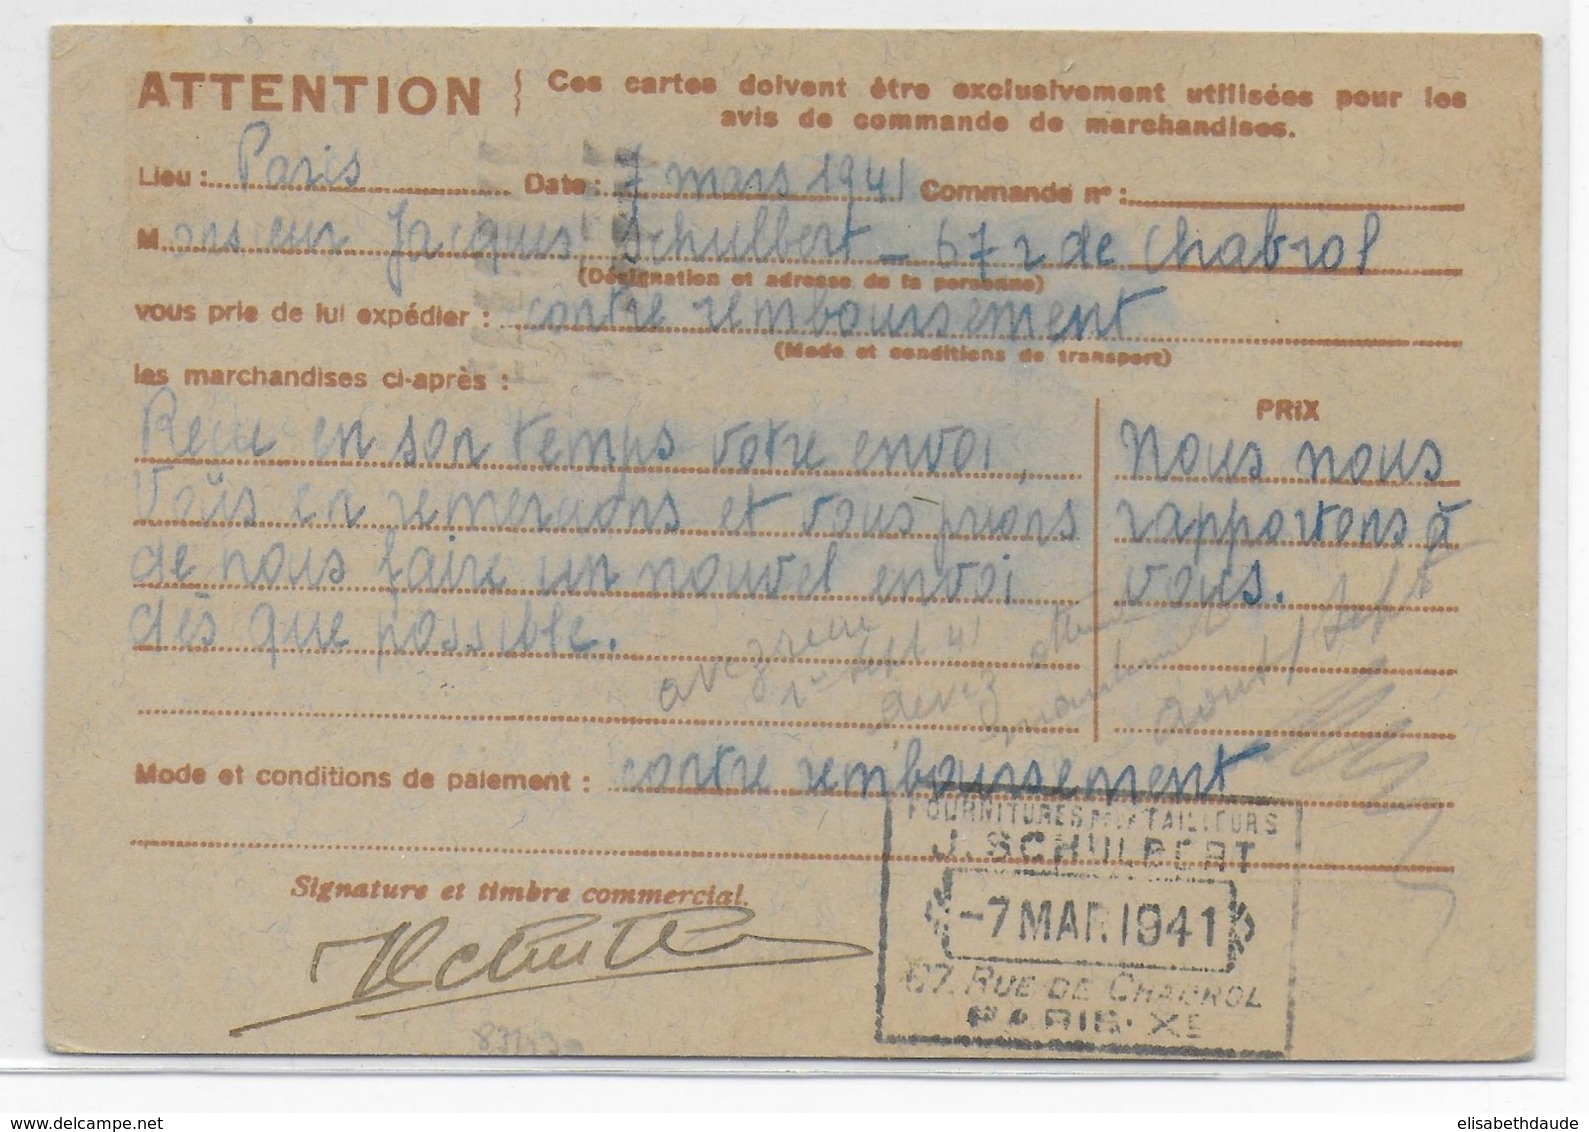 ATTENTION } Ces cartes doivent être exclusivement utilisées pour les
avis de commande de marchandises.
Lieu : Paris Date : 7 mars 1941 Commande nº :
Monsieur Jacques Schulbert - 67 r de Chabrol
(Désignation et adresse de la personne)
vous prie de lui expédier : contre remboursement
(Mode et conditions de transport)
les marchandises ci-après :
PRIX
Reçu en son temps votre envoi,
Vous en remercions et vous prions
de nous faire un nouvel envoi
dès que possible.
Nous nous
rapportons à
vous.
avez
1er sept 41
devez
aout / Sept
Mode et conditions de paiement : contre remboursement
FOURNITURES POUR TAILLEURS
J. SCHULBERT
-7 MAR. 1941
67, RUE DE CHABROL
PARIS-XE
Signature et timbre commercial.
elisabethdaude